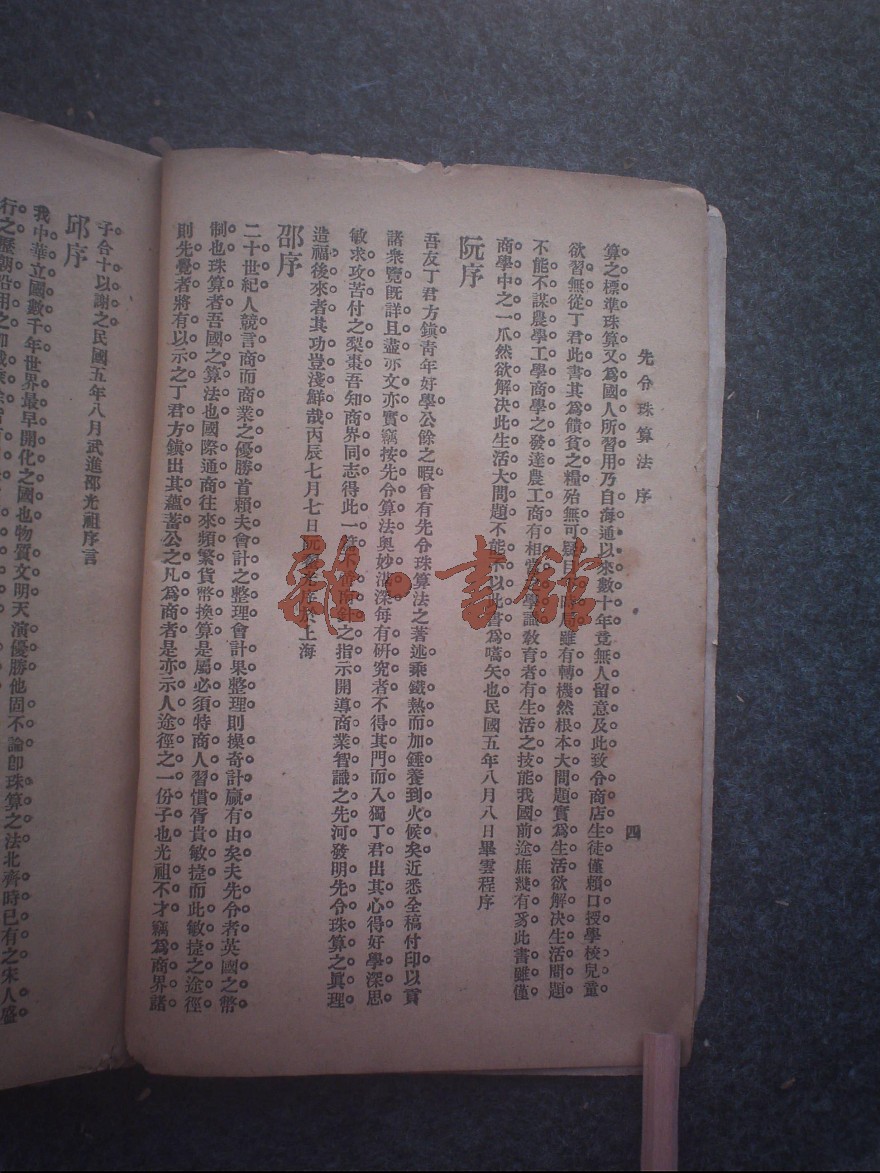 先令珠算法序
四
算之標準珠算又爲國人所習用乃自海通以來數十年竟無人留意及此致令商店生徒僅賴口授學校兒童
欲習無從丁君此書其爲饋貧之糧殆無可疑目下時局雖有轉機然根本大問題實爲生活欲解決生活問題
不能不謀農學工學商學之發達農工商有相當之學識敎育者有生活之技能我國前途庶幾有豸此書雖僅
商學中之一爪然欲解決此生活大問題不能不以此書爲嚆矢也民國五年八月八日畢雲程序
阮序
吾友丁君方鎭靑年好學公餘之暇曾有先令珠算法之著述乘鐵熱而加錘養到火候矣近悉全稿付印以貢
諸衆覽旣詳且盡亦文亦實竊按先令算法奧妙湛深每有硏究者不得其門而入獨丁君出其心得好學深思
敏求攻苦付之梨棗吾知商界同志得此一 南針之指示開導商業智識之先河發明先令珠算之眞理
造福後來者其功豈淺鮮哉丙辰七月七日阮 序於上海
邵序
二十世紀人競言商而商業之優勝首賴夫會計之整理會計果整理則操奇計贏有由矣夫先令者英國之幣
制也珠算者吾國之算法也國際通商往來頻繁貨幣換算是屬必須特商人習慣胥貴敏捷而此敏捷之途徑
則先覺者將有以示之丁君方鎭出其蘊蓄公之凡爲商者是亦示人途徑之一份子也光祖不才竊爲商界諸
子合十以謝之民國五年八月武進邵光祖序言
邱序
我中華立國數千年世界最早開化之國也物質文明天演優勝他固不論卽珠算之法北齊時已有之宋人盛
行之歷朝沿用之
雜·書館